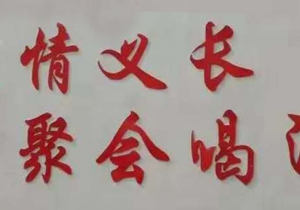 情义长
聚会喝